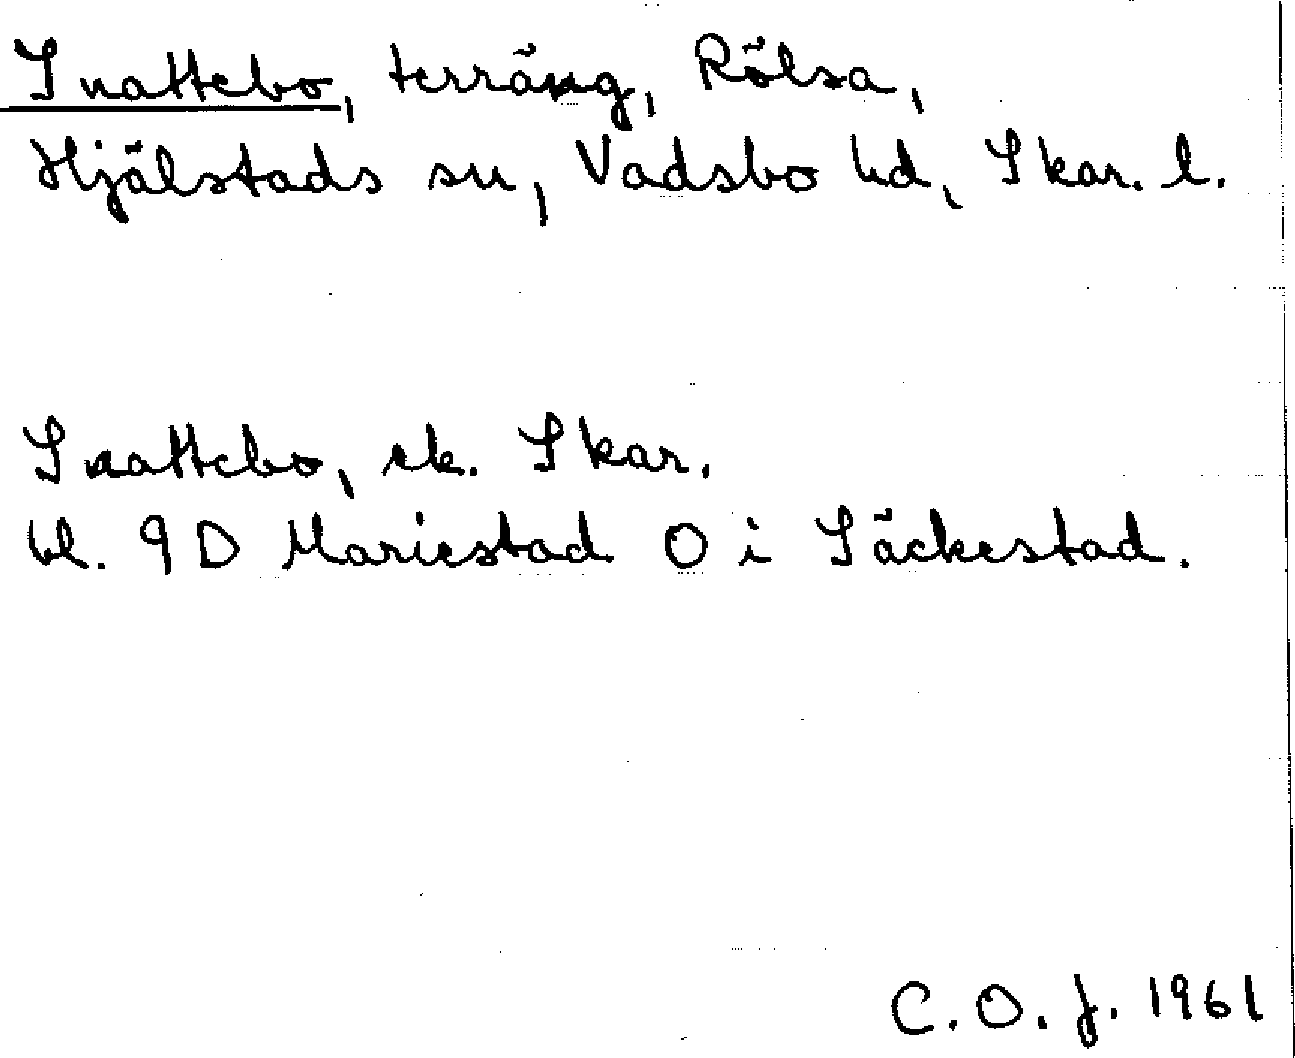 Snattebo, terräng, Rölsa,
Hjälstads sn, Vadsbo hd, Skar. l.
Snattebo, ek. Skar.
bl. 9D Mariestad O i Säckestad.
C.O.J. 1961